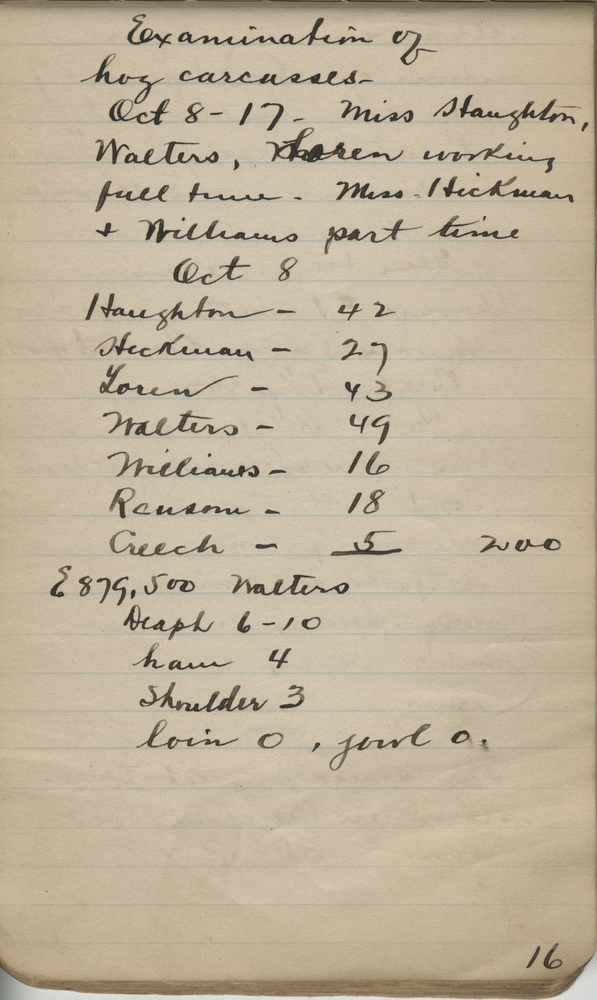 Examination of
hog carcasses-
Oct 8-17- Miss Haughton,
Walters, Loren working
full time - Miss Hickman
+ Williams part time
Oct 8
Haughton - 42
Hickman - 27
Loren - 43
Walters - 49
Williams - 16
Ransom - 18
Creech - 5 200
E879,500 Walters
Diaph 6-10
ham 4
Shoulder 3
loin 0, jowl 0.
16